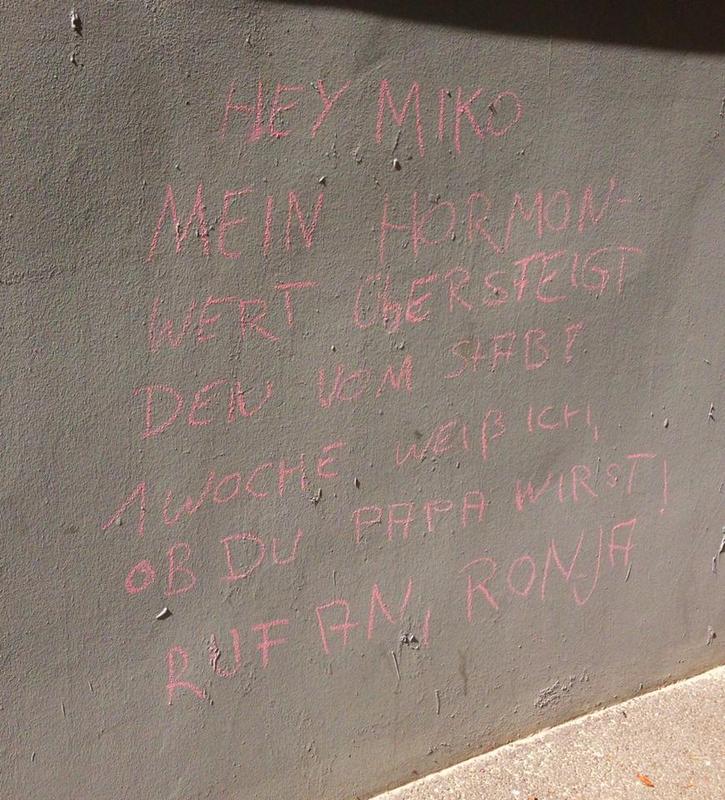 HEY MIKO
MEIN HORMON-
WERT ÜBERSTEIGT
DEN VOM STABE
1 WOCHE WEIß ICH,
OB DU PAPA WIRST!
RUF AN, RONJA